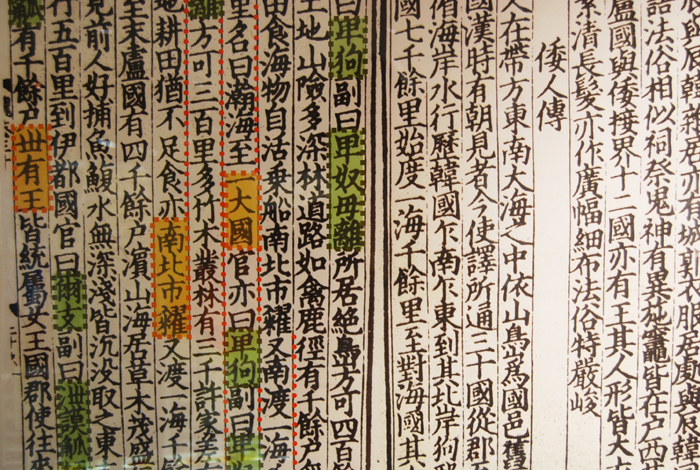 辰韓雜居亦有城郭衣服居處與辰韓
語法俗相似祠祭鬼神有異施竈皆在戶西
盧國與倭接界十二國亦有王其人形皆大
絜清長髮亦作廣幅細布法俗特嚴峻
倭人傳
人在帶方東南大海之中依山島為國邑舊
國漢時有朝見者今使譯所通三十國從郡
循海岸水行歷韓國乍南乍東到其北岸狗邪
國七千餘里始度一海千餘里至對海國其
曰卑狗副曰卑奴毋離所居絶島方可四百餘
土地山險多深林道路如禽鹿徑有千餘戶無
田食海物自活乗船南北市糴又南渡一海千
里名曰瀚海至一大國官亦曰卑狗副曰卑奴
離方可三百里多竹木叢林有三千許家差有
地耕田猶不足食亦南北市糴又渡一海千餘
至末盧國有四千餘戶濱山海居草木茂盛
見前人好捕魚鰒水無深淺皆沉没取之東
行五百里到伊都國官曰爾支副曰泄謨觚
觚有千餘戶丗有王皆統屬女王國郡使往來